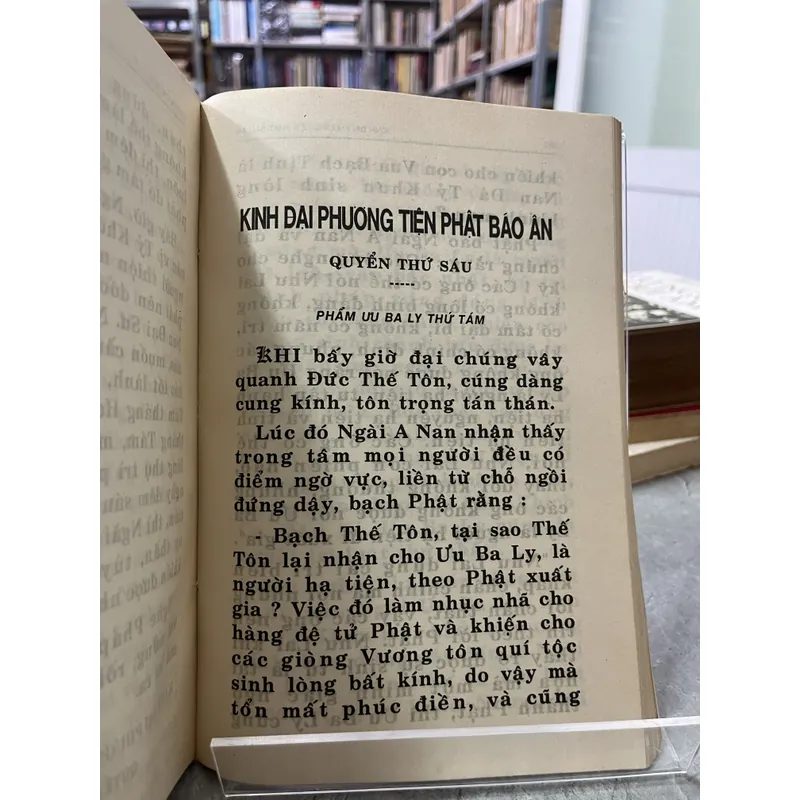 KINH ĐẠI PHƯƠNG TIỆN PHẬT BÁO ÂN
QUYỂN THỨ SÁU
-----
PHẨM ƯU BA LY THỨ TÁM
KHI bấy giờ đại chúng vây
quanh Đức Thế Tôn, cúng dàng
cung kính, tôn trọng tán thán.
Lúc đó Ngài A Nan nhận thấy
trong tâm mọi người đều có
điểm ngờ vực, liền từ chỗ ngồi
đứng dậy, bạch Phật rằng :
- Bạch Thế Tôn, tại sao Thế
Tôn lại nhận cho Ưu Ba Ly, là
người hạ tiện, theo Phật xuất
gia ? Việc đó làm nhục nhã cho
hàng đệ tử Phật và khiến cho
các giòng Vương tôn quí tộc
sinh lòng bất kính, do vậy mà
tổn mất phúc điền, và cũng